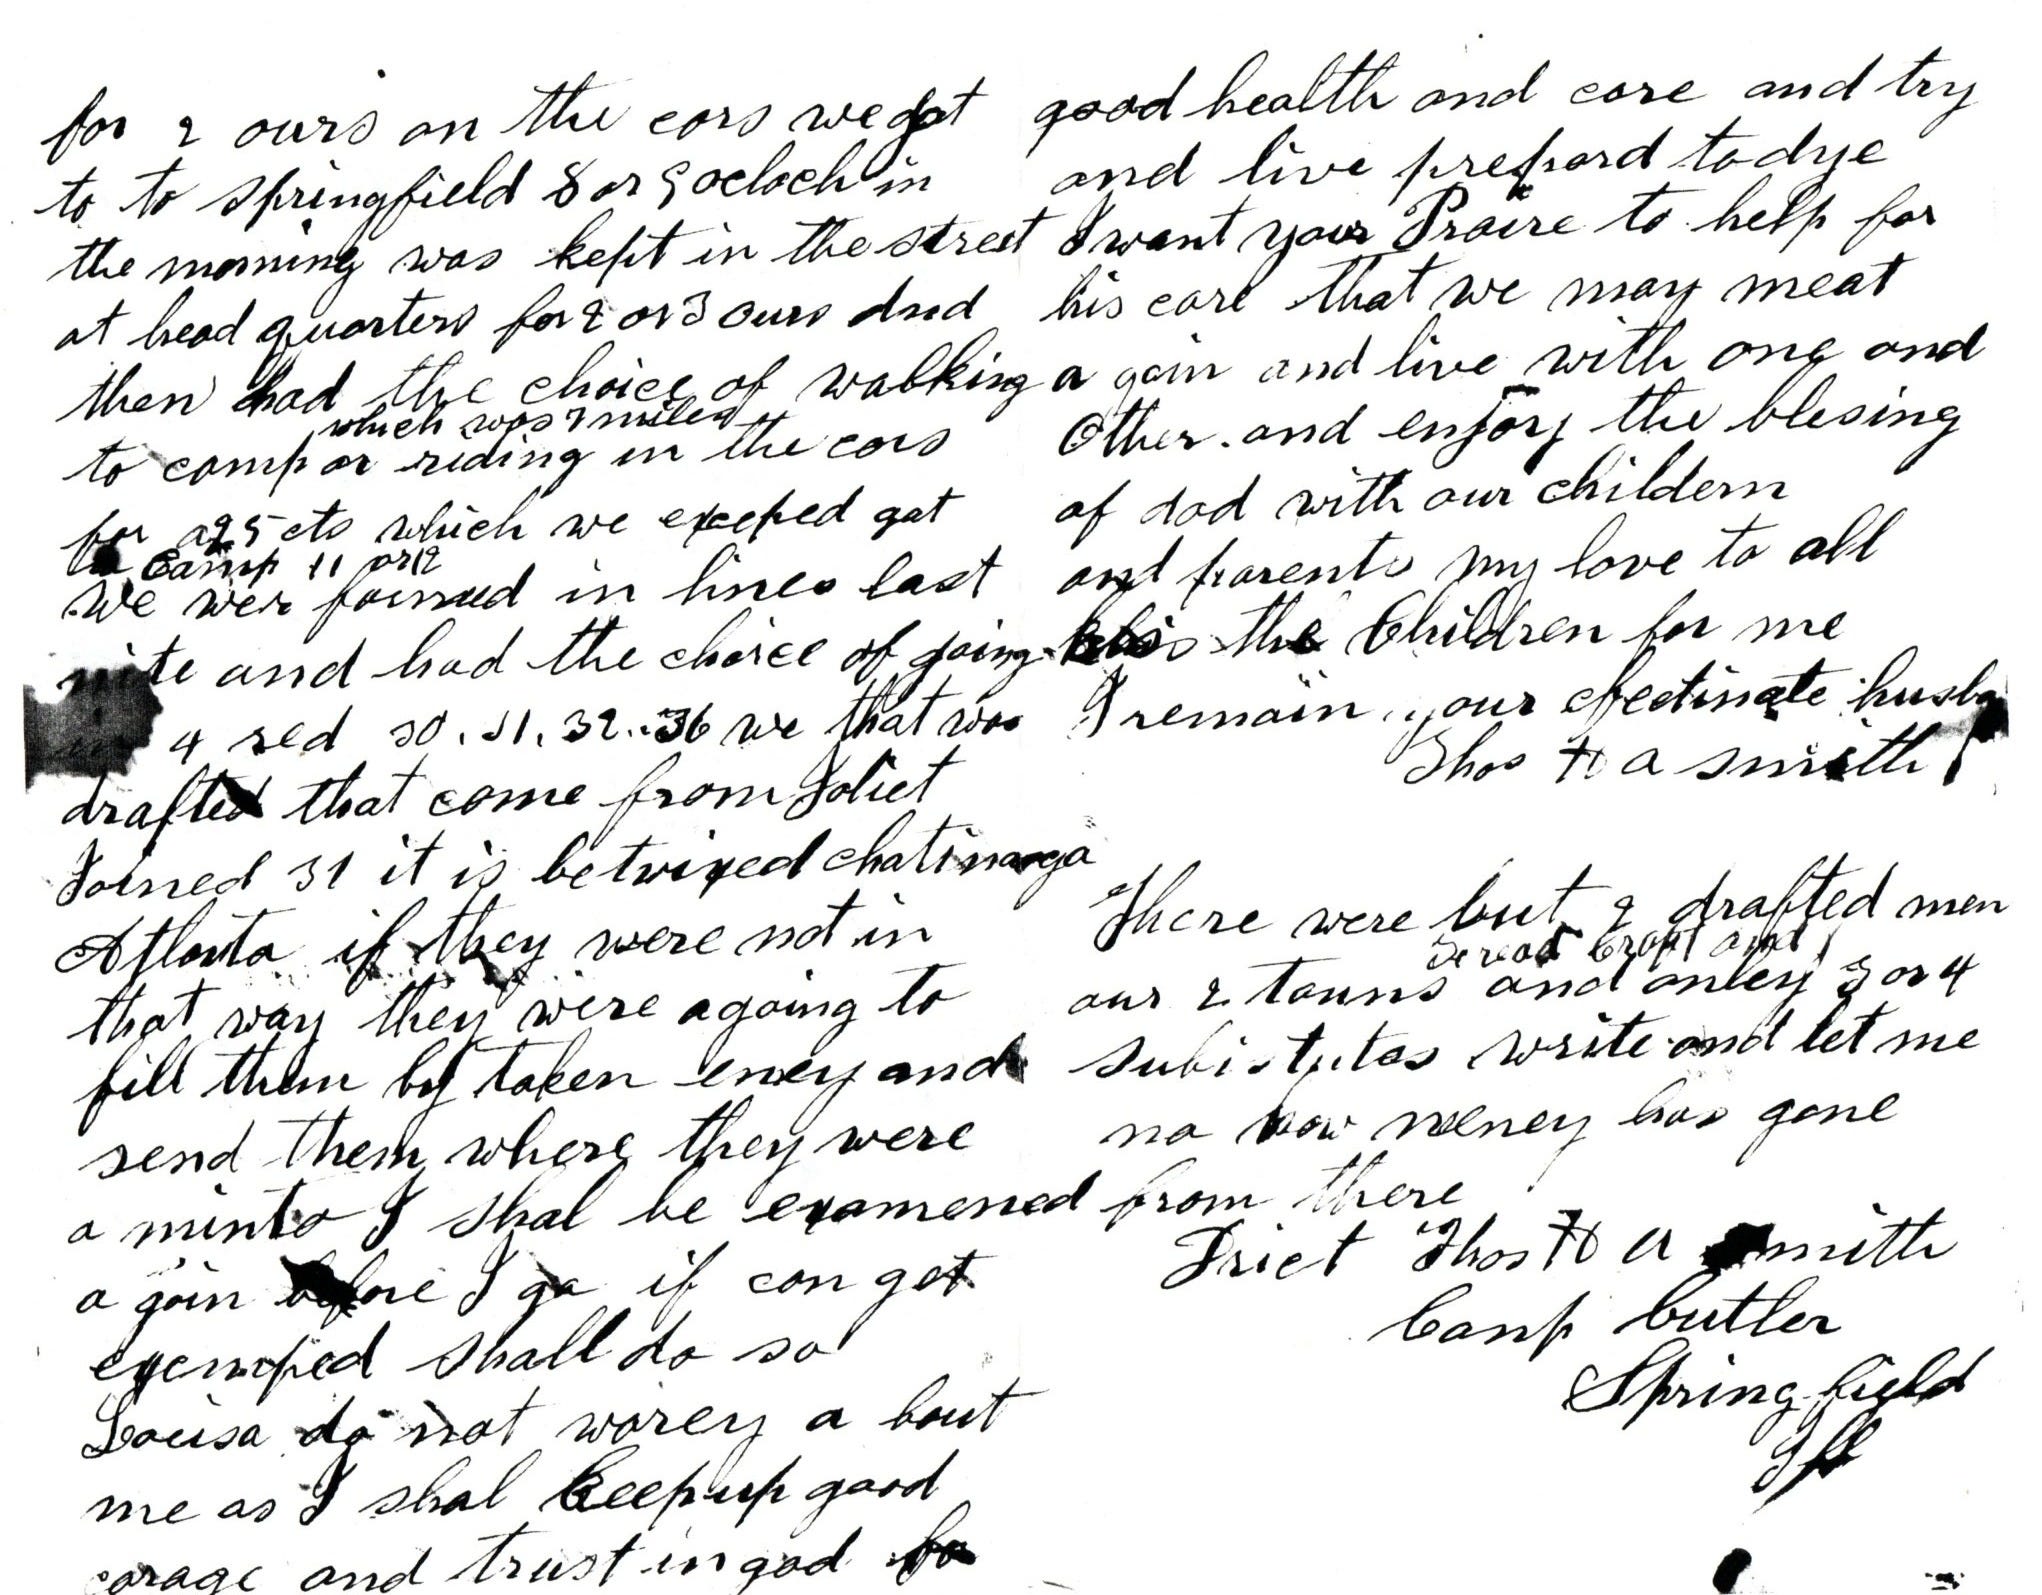 for 2 ours on the cars we got
to to springfield 8 or 9 ocloch in
the morning was kept in the street
at head quarters for 2 or 3 ours and
then had the choice of walking
which was 7 miles
to camp or riding in the cars
for a 25 cts which we exceped got
to Camp 11 or 12
we wer formed in lines last
nite and had the choice of going
in 4 red 30. 31. 32. 36 we that was
drafted that come from Joliet
Joined 31 it is betwixed chatinooga
Atlanta if they were not in
that way they were agoing to
fill them by taken eney and
send them where they were
a minto I shal be examened
a gain before I go if can get
exemped shall do so
Louisa do not worey a bout
me as I shal keep up good
corage and trust in god for
good health and care and try
and live prepard to dye
I want your Praire to help for
his care that we may meat
a gain and live with one and
Other. and enjoy the blesing
of dod with our childern
and parents my love to all
kiss the Children for me
I remain your efectinate husba
Thos H a smith
There were but 2 drafted men
and
our 2 touns and onley 3 or 4
subistutes write and let me
no how meney has gone
from there
Drict Thos H a smith
Camp butler
Spring field
Ill